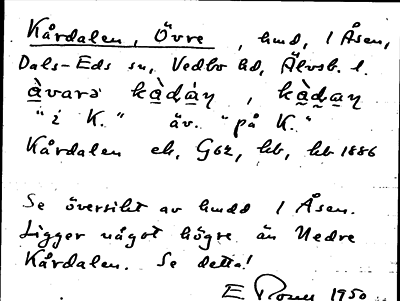 Kårdalen, Övre, hmd, 1 Åsen,
Dals-Eds sn, Vedbo hd, Älvsb. l.
àvarə kàḍàṇ, kàḍaṇ
"i K." äv. "på K."
Kårdalen ek, G62, hb, hb 1886
Se översikt av hmdd 1 Åsen.
Ligger något högre än Nedre
Kårdalen. Se detta!
E 1950